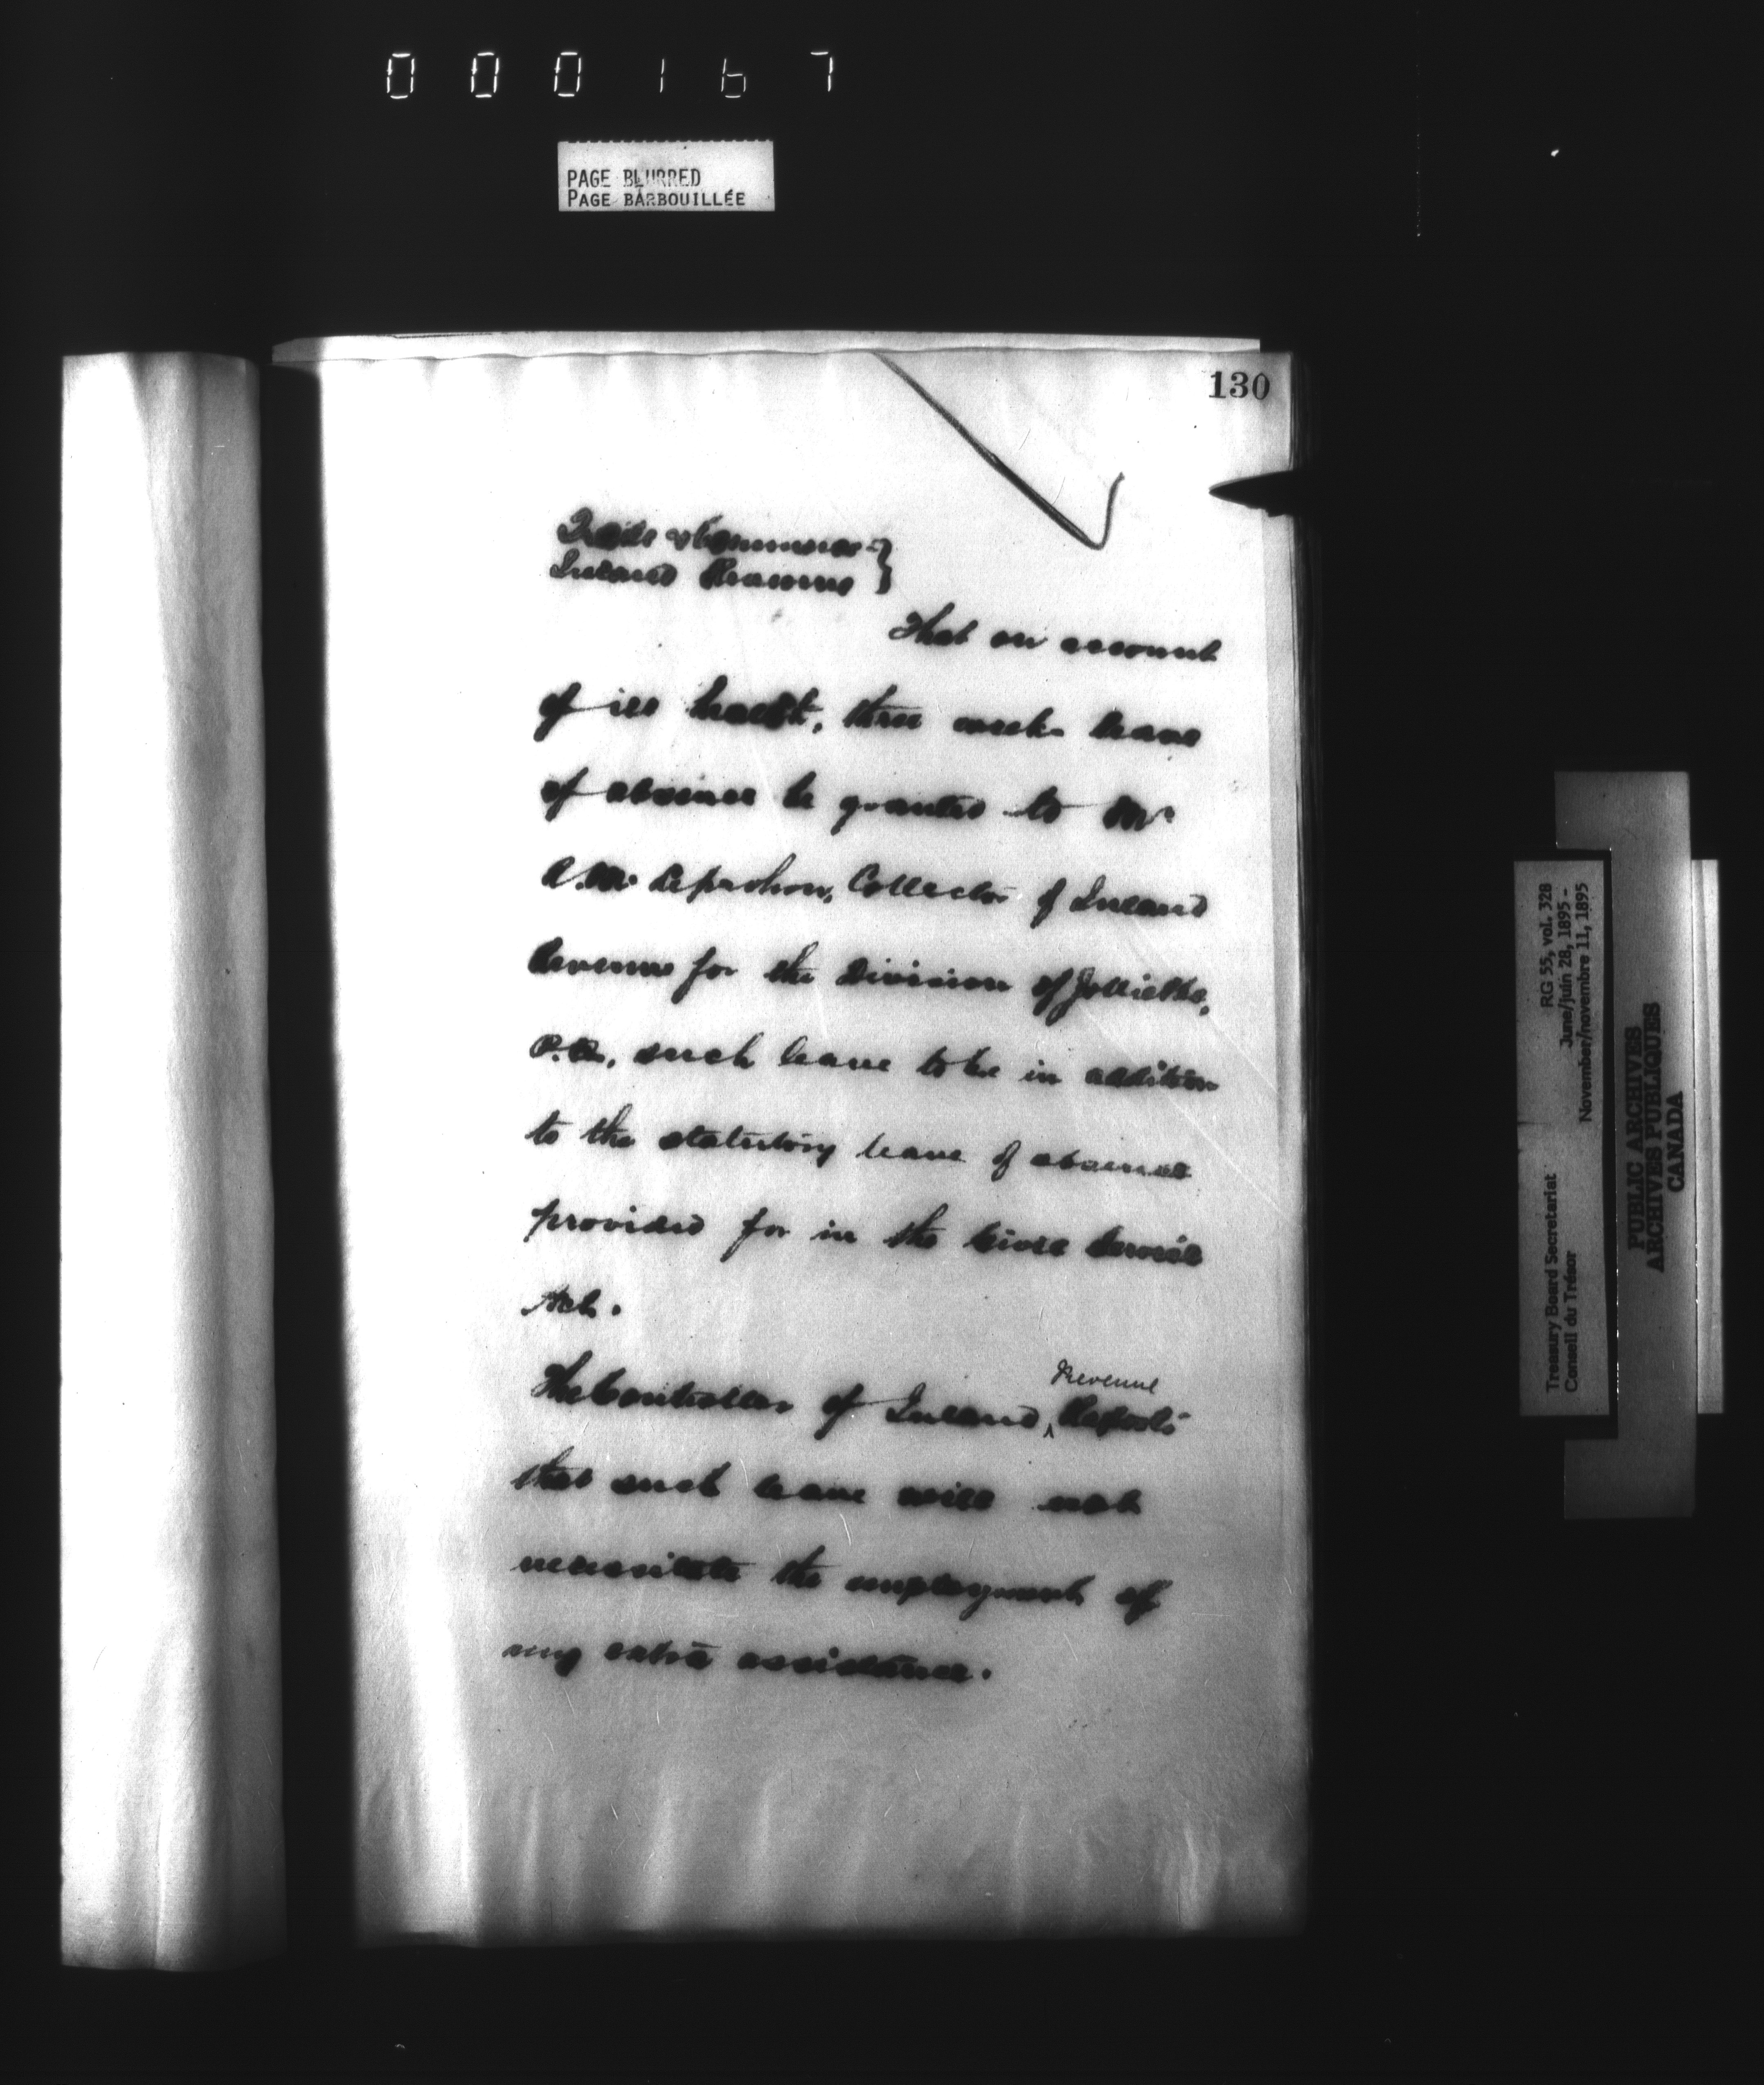 000167
PAGE BLURRED
PAGE BARBOUILLÉE
130
Trade & Commerce }
Inland Revenue }
That on account
of ill health, three weeks leave
of absence be granted to Mr
A. M. Leprohon, Collector of Inland
Revenue for the Division of Jolliette,
P.Q., such leave to be in addition
to the statutory leave of absence
provided for in the Civil Service
Act.
The Controller of Inland ^ Revenue Reports
that such leave will not
necessitate the employment of
any extra assistance.
Treasury Board Secretariat RG 55, vol. 328
Conseil du Trésor June/juin 28, 1895 -
November/novembre 11, 1895
PUBLIC ARCHIVES
ARCHIVES PUBLIQUES
CANADA